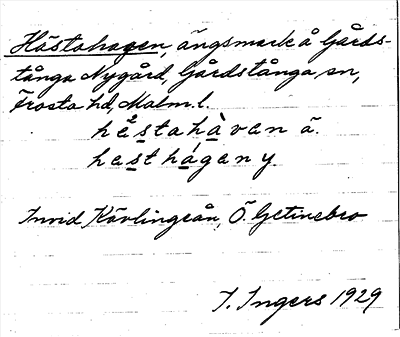 Hästahagen, ängsmark å Gårds-
tånga Nygård, Gårdstånga sn,
Frosta hd, Malm. l.
hęstahàvan ä.
hasthágen y.
Invid Kävlingeån, Ö. Getinebro
I. Ingers 1929